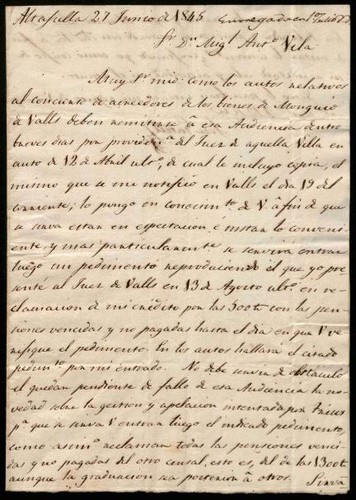 Altafulla 27 Junio de 1845
Sr. Dn. Migl. Anto. Vila
Muy Sr. mio: como los autos relativos
al concurso de acreedores de los bienes de
de Valls deben remitirse á esa Audiencia dentro
breves dias por providena. del Juez de aquella Villa en
auto de 12 de Abril ulto., de cual le incluyo copia, el
mismo que se me notificó en Valls el dia 19 del
corriente; lo pongo en conocimto. de V. á fin de que
se sirva estar en espectacion é instar lo conveni-
ente, y mas particularmente se servirá entrar
luego un pedimento reproduciendo el que yo pre
senté al Juez de Valls en 13 de Agosto ulto. en re-
clamacion de mi crédito por las 500 tt con las pen
siones vencidas y no pagadas hasta el dia en que V. ve-
rifique el pedimento. En los autos hallará el citado
pedimto. por mi entrado. No debe servir de obstáculo
el quedar pendiente de fallo de esa Audiencia la no-
vedad sobre la gestion y apelacion intentada por
pa. que se sirva V. entrar luego el indicado pedimento,
como asimo. reclamar todas las pensiones venci
das y no pagadas del otro censal, esto es, del de las 1300 tt
aunque la graduacion sea posterior á otros. Sirva